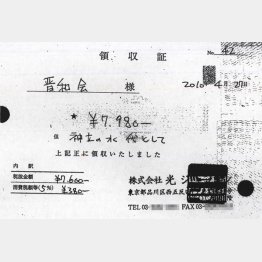 領収証
No. 42
晋和会 様
2010年4月27日
★ ¥7,980−
但 神士の水 代として
上記正に領収いたしました
内訳
税抜金額 ¥7,600−
消費税額等(5%) ¥380−
株式会社 光
東京都品川区西五反
TEL 03- FAX 03-